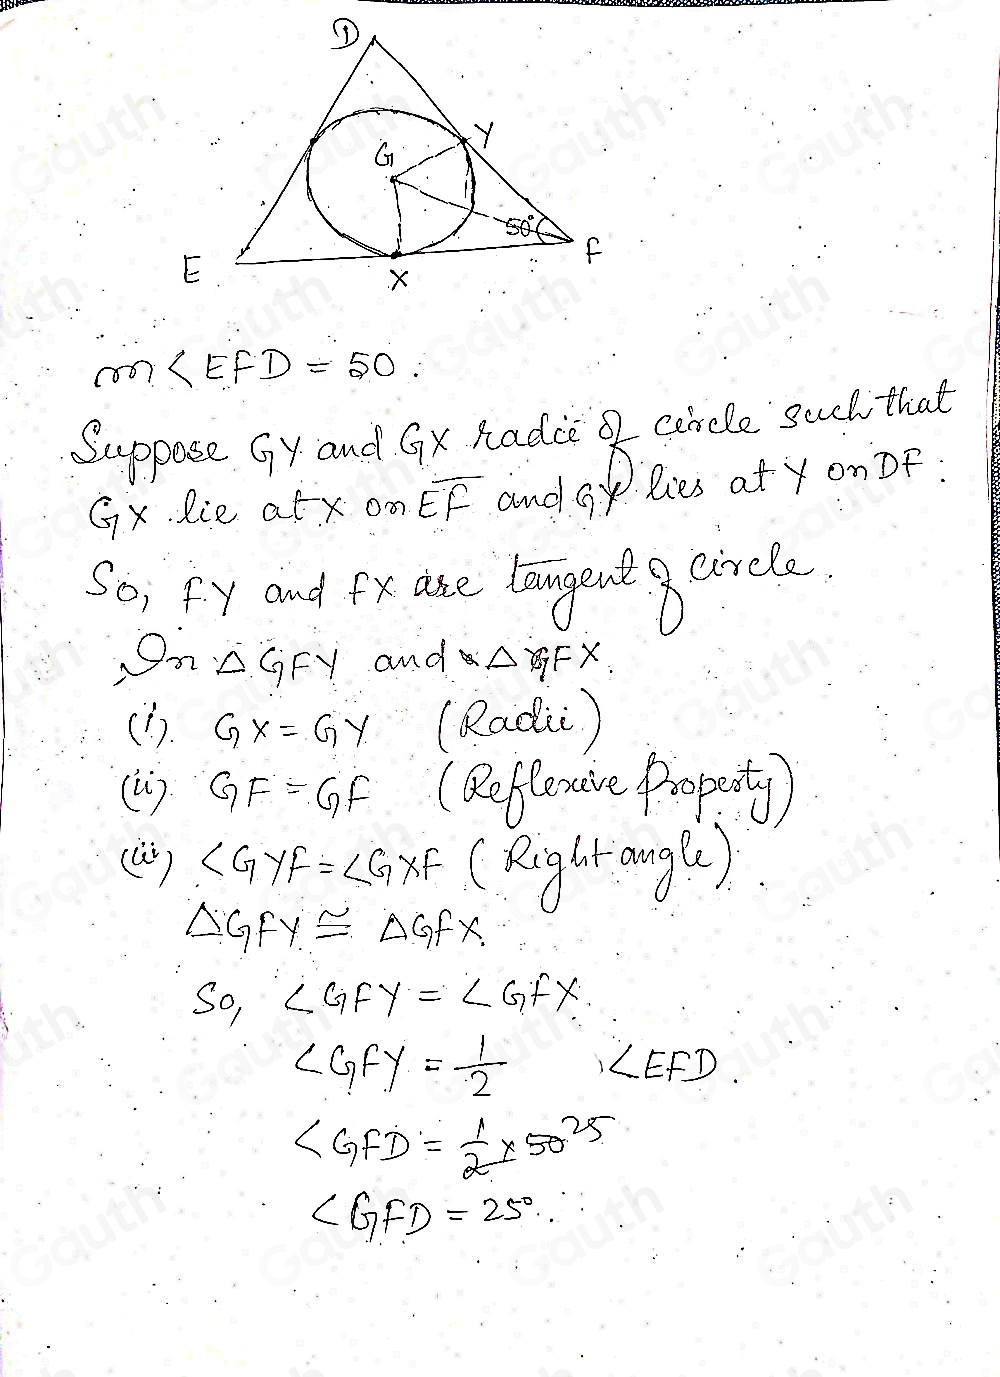 D
Y
G
50°
F
E
X
m<EFD = 50.
Suppose GY and GX radii of circle such that
GX lie at X on EF and GY lies at Y on DF.
So, FY and FX are tangent of circle.
In △GFY and △GFX.
(i). GX = GY (Radii)
(ii) GF = GF (Reflexive Property)
(iii) <GYF = <GXF (Right angle).
△GFY ≅ △GFX.
So, <GFY = <GFX.
<GFY = 1/2 <EFD.
<GFD = 1/2 × 50 25
<GFD = 25°.